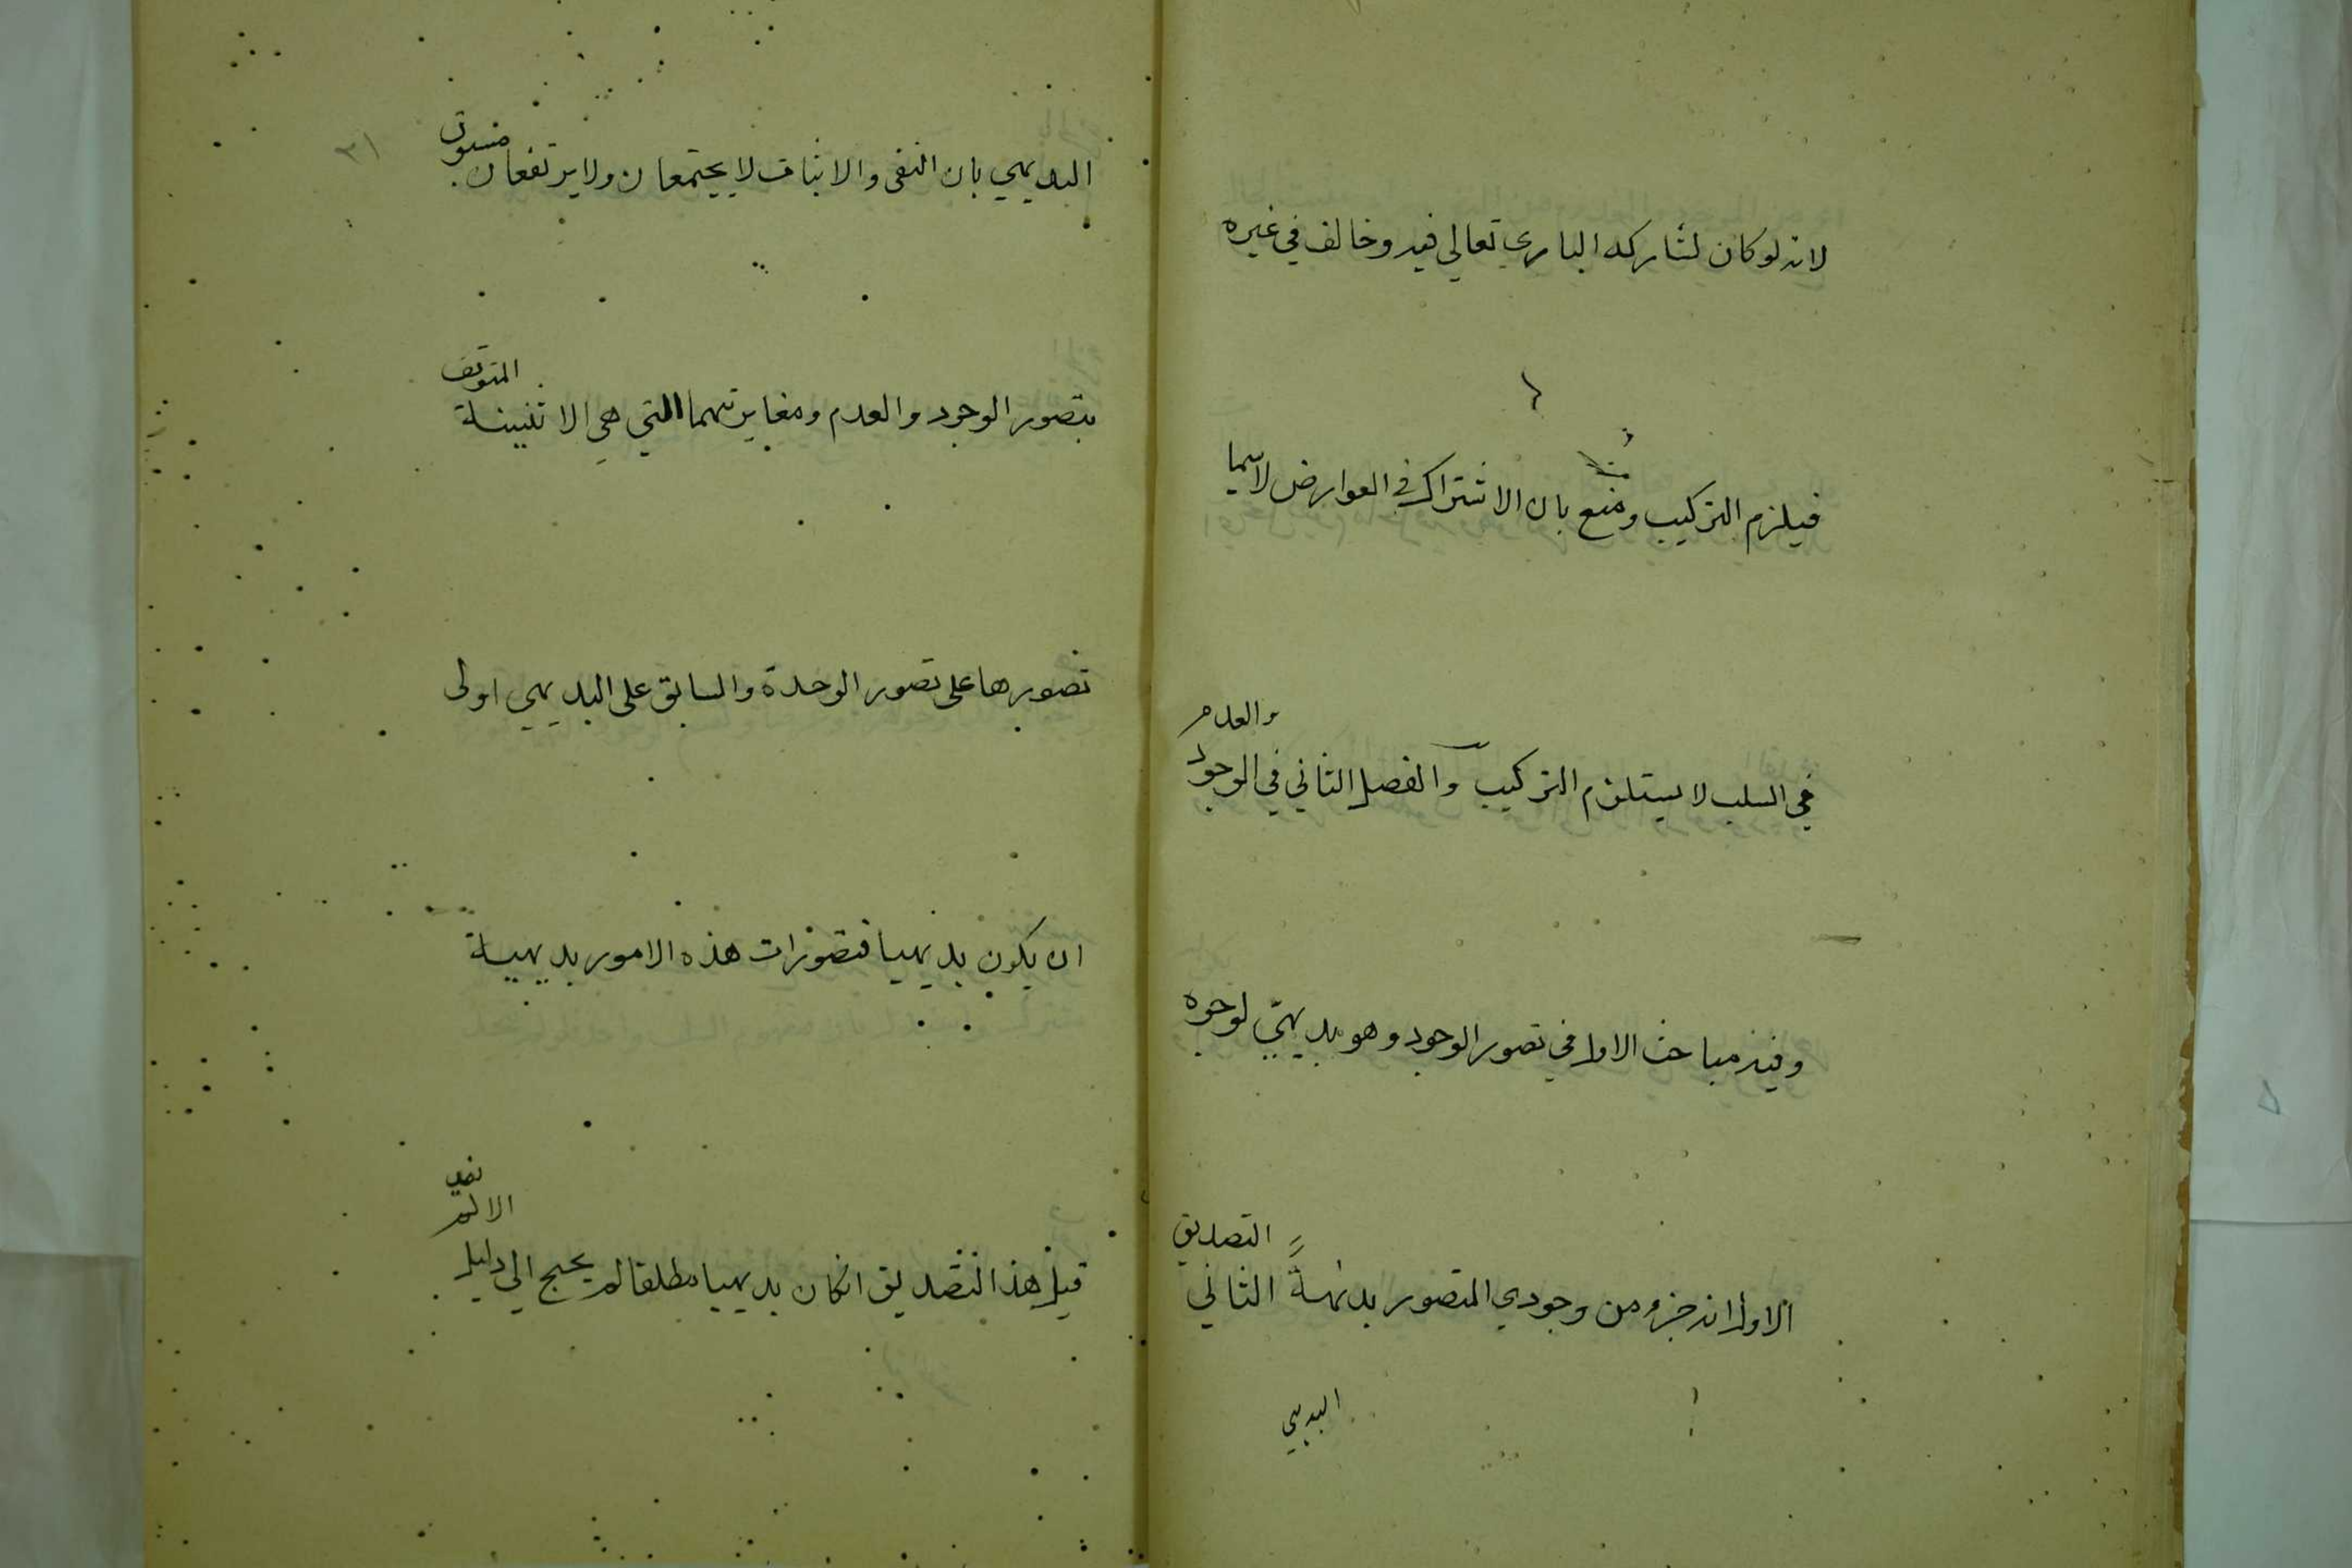 لانه لو كان لشاركه الباري تعالى فيه وخالف في غيره
فيلزم التركيب ومنع بان الاشتراك في العوارض لاسيما
في السلب لا يستلزم التركيب والفصل الثاني في الوجود والعدم
وفيه مباحث الاول في تصور الوجود وهو بديهي لوجوه
الاول انه جزء من وجودي المتصور بديهة الثاني التصديق
البديهي
٢١
البديهي بان النفى والاثبات لا يجتمعان ولا يرتفعان مسبوق
بتصور الوجود والعدم ومغايرتهما التي هي الاثنينية المتوقف
تصورها على تصور الوحدة والسابق على البديهي اولى
ان يكون بديهيا فتصورات هذه الامور بديهية
قيل هذا التصديق انكان بديهيا مطلقا لم يحتج الى دليل